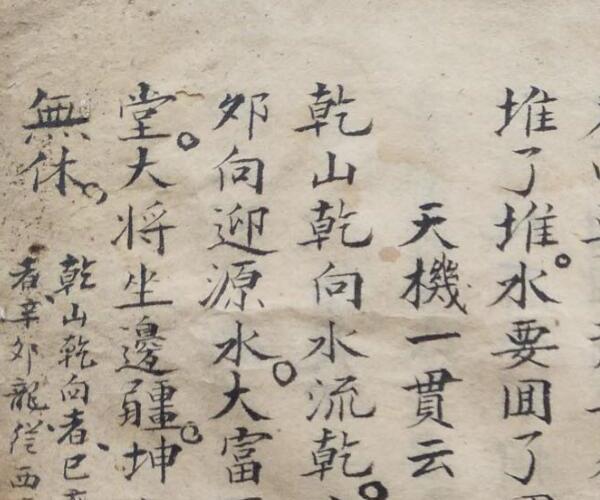 堆了堆。水要囬了
天機一貫云
乾山乾向水流乾。
夘向迎源水。大富
堂。大将坐邊疆。坤
無休。
乾山乾向者巳
者辛夘龍從西